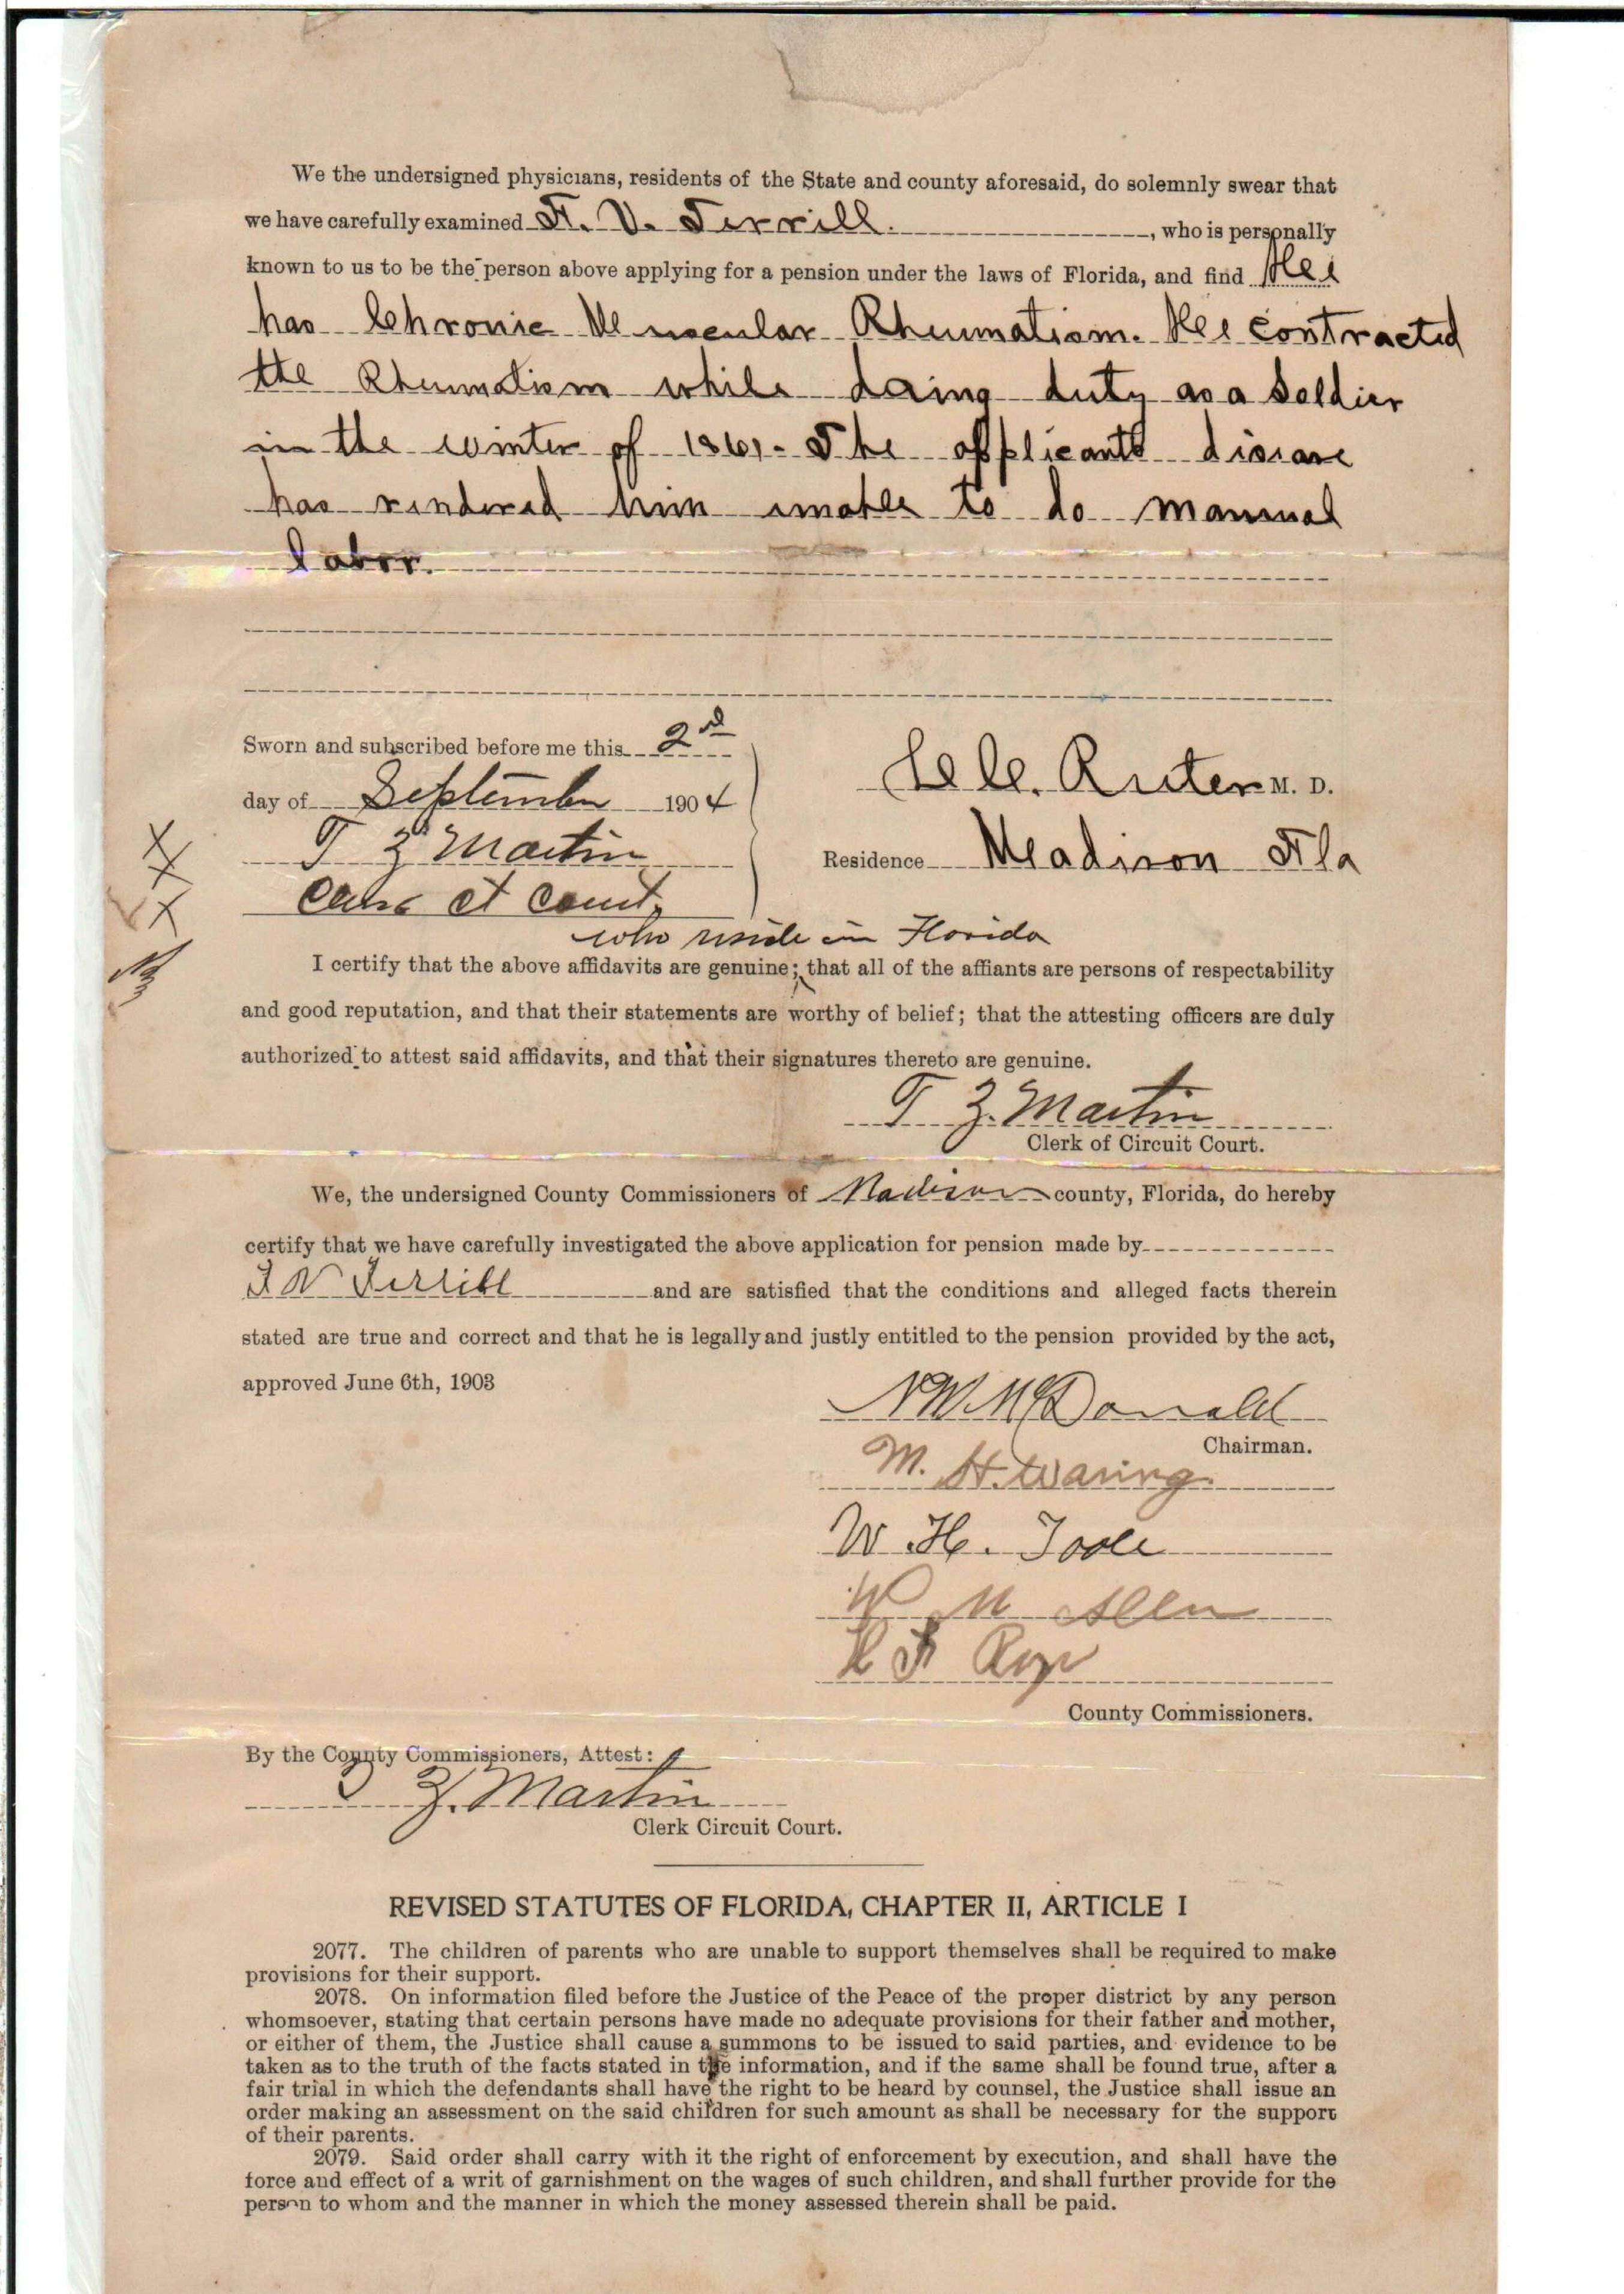 We the undersigned physicians, residents of the State and county aforesaid, do solemnly swear that
we have carefully examined F. V. Terrill. , who is personally
known to us to be the person above applying for a pension under the laws of Florida, and find He
has Chronic Muscular Rheumatism. He contracted
the Rheumatism while doing duty as a Soldier
in the winter of 1861. The applicants disease
has rendered him unable to do manual
labor.
Sworn and subscribed before me this 2nd
day of September 1904
T Z Martin
Clerk Ct Court.
Ruter M. D.
Residence Madison Fla
who reside in Florida
I certify that the above affidavits are genuine; that all of the affiants are persons of respectability
and good reputation, and that their statements are worthy of belief; that the attesting officers are duly
authorized to attest said affidavits, and that their signatures thereto are genuine.
T Z. Martin
Clerk of Circuit Court.
We, the undersigned County Commissioners of Madison county, Florida, do hereby
certify that we have carefully investigated the above application for pension made by
F V Terrill and are satisfied that the conditions and alleged facts therein
stated are true and correct and that he is legally and justly entitled to the pension provided by the act,
approved June 6th, 1903
N W McDonald
Chairman.
M. H. Waring
W. H. Toole
W M Allen
County Commissioners.
By the County Commissioners, Attest:
T Z. Martin
Clerk Circuit Court.
REVISED STATUTES OF FLORIDA, CHAPTER II, ARTICLE I
2077. The children of parents who are unable to support themselves shall be required to make
provisions for their support.
2078. On information filed before the Justice of the Peace of the proper district by any person
whomsoever, stating that certain persons have made no adequate provisions for their father and mother,
or either of them, the Justice shall cause a summons to be issued to said parties, and evidence to be
taken as to the truth of the facts stated in the information, and if the same shall be found true, after a
fair trial in which the defendants shall have the right to be heard by counsel, the Justice shall issue an
order making an assessment on the said children for such amount as shall be necessary for the support
of their parents.
2079. Said order shall carry with it the right of enforcement by execution, and shall have the
force and effect of a writ of garnishment on the wages of such children, and shall further provide for the
person to whom and the manner in which the money assessed therein shall be paid.